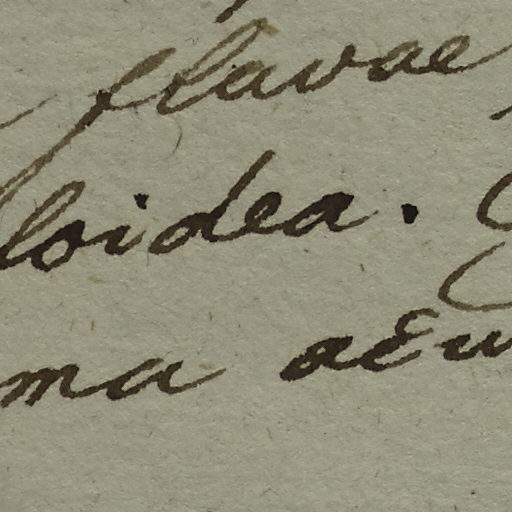 flavae
loidea.
ma aeu